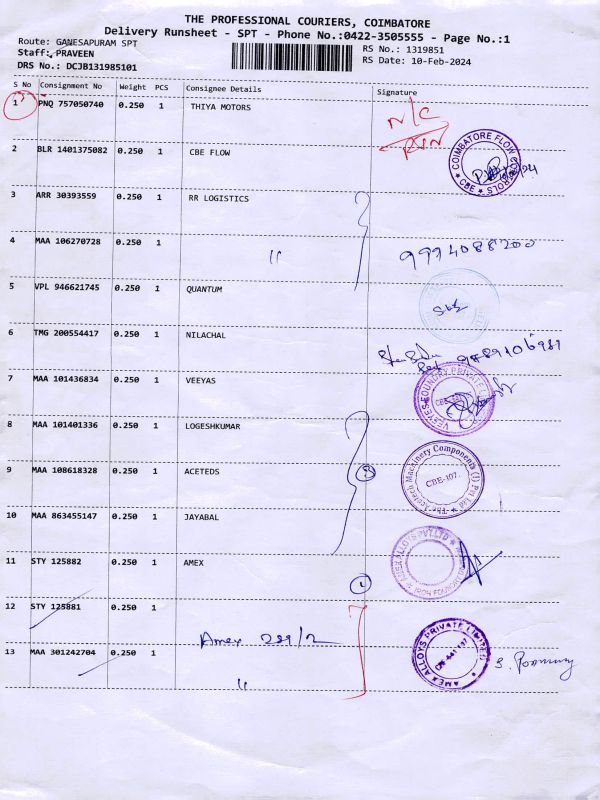 THE PROFESSIONAL COURIERS, COIMBATORE
Delivery Runsheet - SPT - Phone No.:0422-3505555 - Page No.:1
Route: GANESAPURAM SPT
Staff: PRAVEEN
DRS No.: DCJB131985101
RS No.: 1319851
RS Date: 10-Feb-2024
S No Consignment No Weight PCS Consignee Details Signature
1 PNQ 757050740 0.250 1 THIYA MOTORS N/C
2 BLR 1401375082 0.250 1 CBE FLOW COIMBATORE FLOW CBE
3 ARR 30393559 0.250 1 RR LOGISTICS
4 MAA 106270728 0.250 1 " 9994088200
5 VPL 946621745 0.250 1 QUANTUM
6 TMG 200554417 0.250 1 NILACHAL
7 MAA 101436834 0.250 1 VEEYAS VEEYES FOUNDRY PRIVATE
8 MAA 101401336 0.250 1 LOGESHKUMAR
9 MAA 108618328 0.250 1 ACETEDS Machinery Components (I) Pvt Ltd CBE-107.
10 MAA 863455147 0.250 1 JAYABAL
11 STY 125882 0.250 1 AMEX AMEX ALLOYS PVT LTD
12 STY 125881 0.250 1 Amex
13 MAA 301242704 0.250 1 " AMEX ALLOYS PRIVATE LIMITED